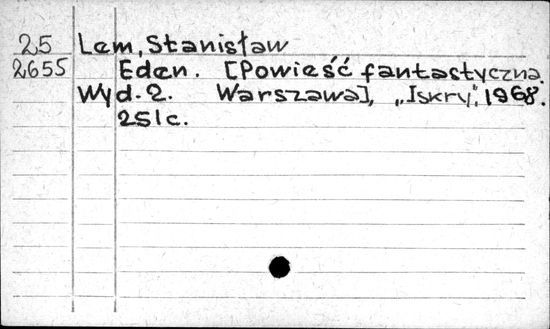 25 Lem, Stanisław
2655 Eden. [Powieść fantastyczna.
Wyd. 2. Warszawa], „Iskry", 1968.
251c.